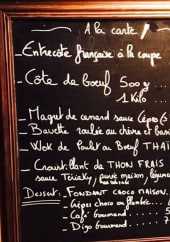 A la carte !
_ Entrecôte française à la coupe
_ Côte de boeuf 500g
1 Kilo
_ Magret de canard sauce Cèpes
_ Bavette roulée au chèvre et
_ Wok de Poulet ou Boeuf THAÏ
_ Croustillant de THON FRAIS
sauce Teriaky, purée maison, légumes
Dessert: _ FONDANT CHOCO MAISON.
_ Crêpes Choco ou flambée...
_ Café Gourmand ....
_ Digo Gourmand ....